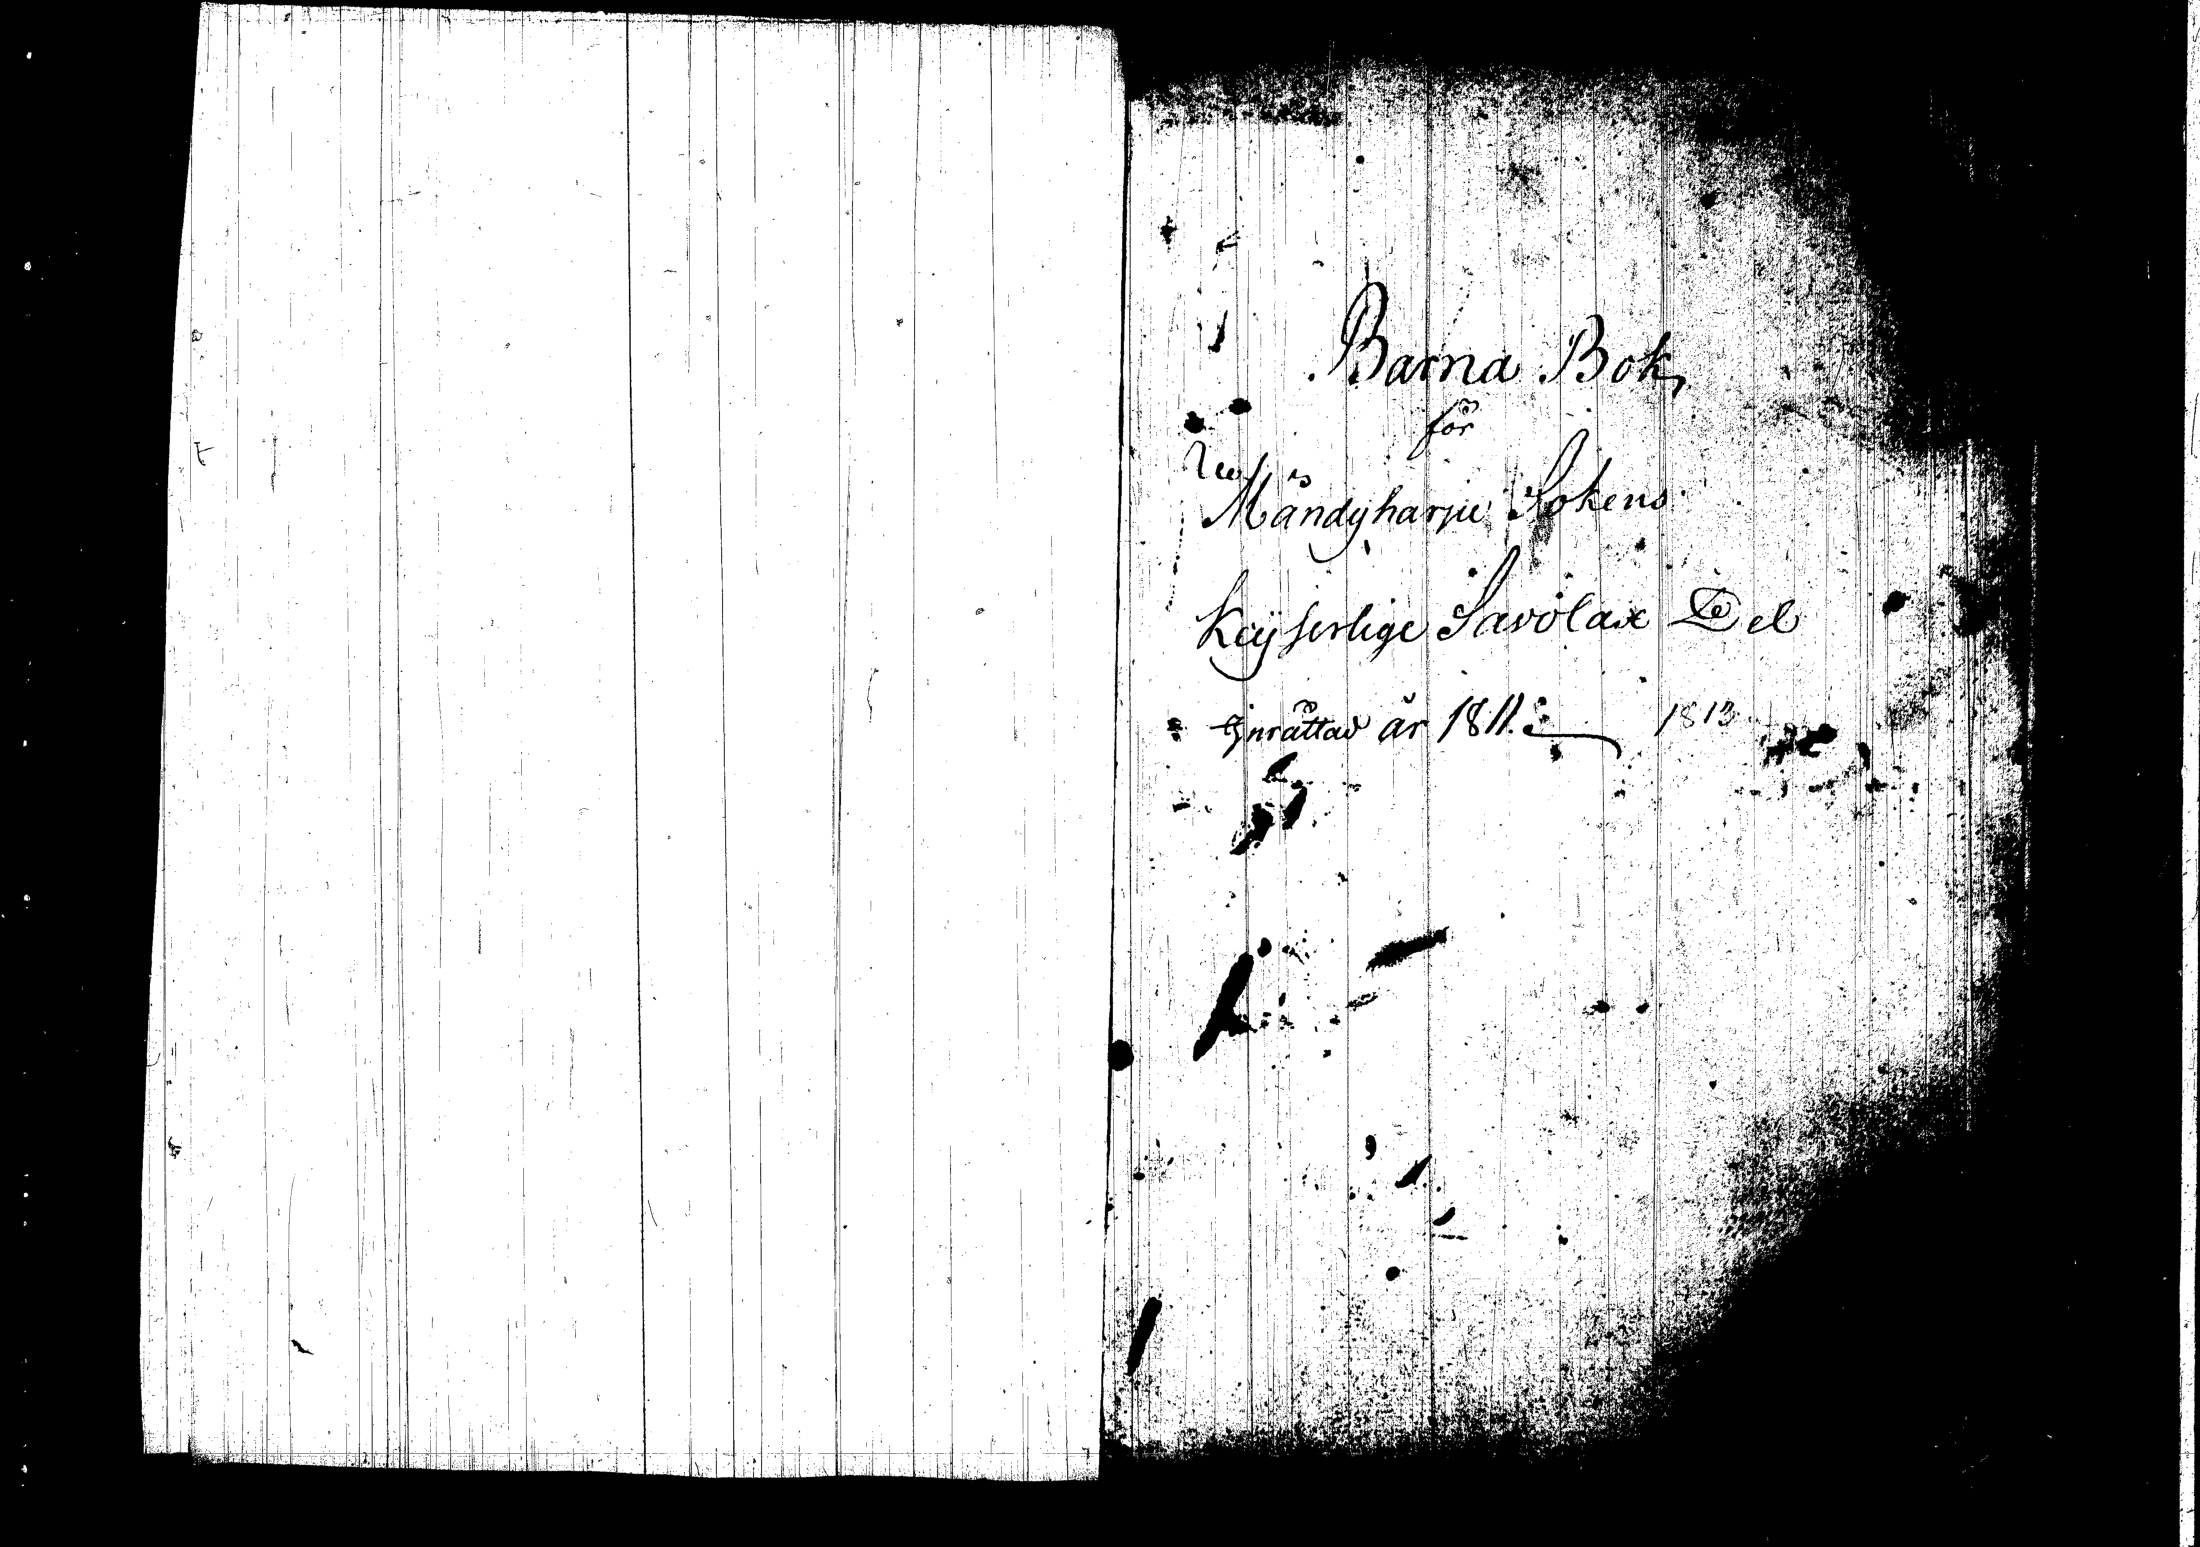 Barna Bok,
för
Mändyharju Sokens
Keyserlige Savolax Del
Inrättad år 1811. 1813